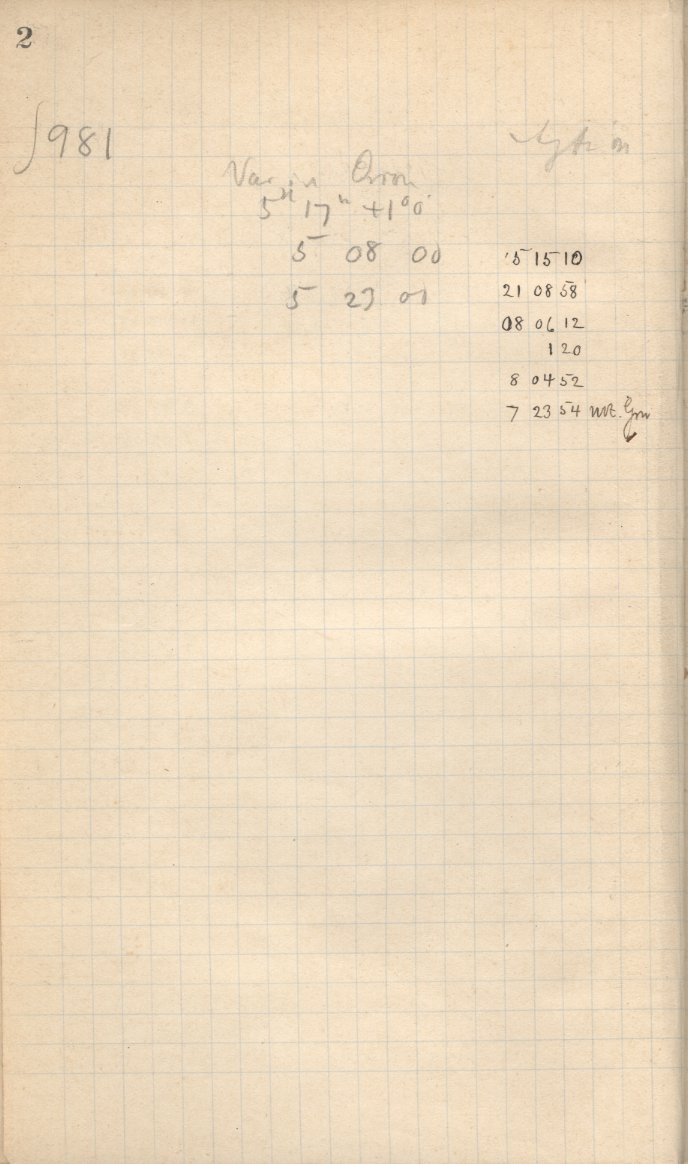 2
981
Var in Orion
5h 17m +1°0'
5 08 00
5 23 00
5 15 10
21 08 58
08 06 12
1 20
8 04 52
7 23 54 mt. Grw